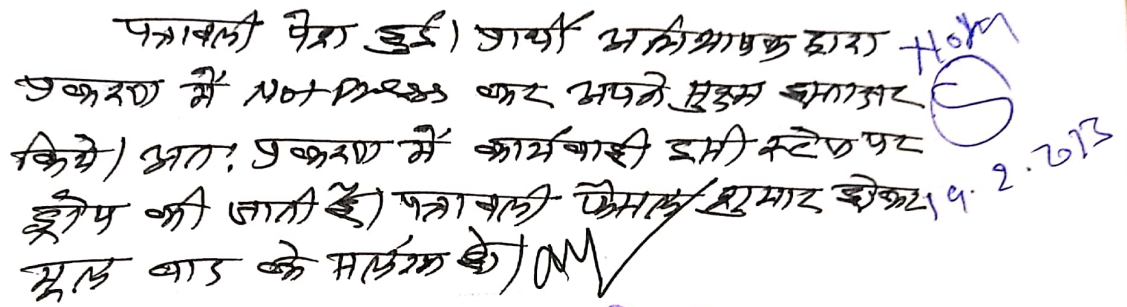 पत्रावली पेश हुई। प्रार्थी अभिभाषक द्वारा
प्रकरण में Not Press कर अपने हस्ताक्षर
किये। अतः प्रकरण में कार्यवाही इसी स्टेज पर
ड्रोप की जाती है। पत्रावली फैसल शुमार होकर
मूल वाद के संलग्न हो।
19.2.2013